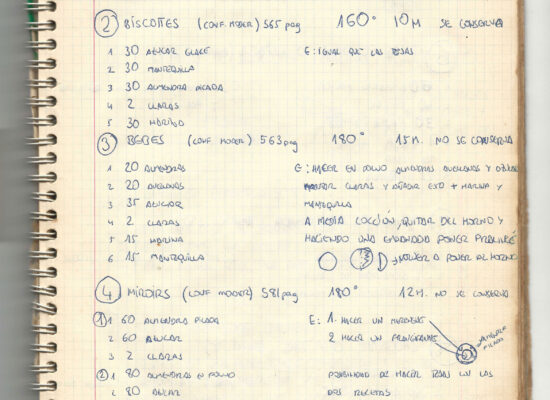 ② BISCOTTES (CONF. MODER) 565 pag 160° 10 M SE CONSERVA
1 30 AZUCAR GLACÉ E: IGUAL QUE LAS TEJAS
2 30 MANTEQUILLA
3 30 ALMENDRA PICADA
4 2 CLARAS
5 30 HARINA
③ BEBES (CONF. MODER) 563 pag 180° 15 M. NO SE CONSERVA
1 20 ALMENDRAS E: HACER EN POLVO ALMENDRAS AVELLANAS Y AZUCAR
2 20 AVELLANAS MONTAR CLARAS Y AÑADIR ESTO + HARINA Y
3 35 AZUCAR MANTEQUILLA
4 2 CLARAS A MEDIA COCCIÓN, QUITAR DEL HORNO Y
5 15 HARINA HACIENDO UNA PONER PRALINÉ
6 15 MANTEQUILLA VOLVER A PONER AL HORNO
④ MIROIRS (CONF MODER) 581 pag 180° 12 M. NO SE CONSERVA
① 1 60 ALMENDRA PICADA E: 1. HACER UN MERENGUE
2 60 AZUCAR 2 HACER UN ALMENDRA PICADA
3 2 CLARAS
② 1 80 ALMENDRAS EN POLVO POSIBILIDAD DE HACER TEJAS CON LAS
2 80 AZUCAR DOS RECETAS